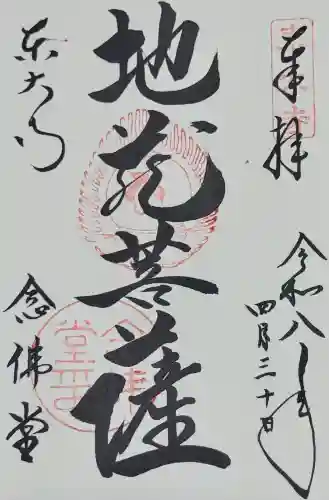 奉拝
令和八年
四月三十日
地蔵菩薩
東大寺
念佛堂